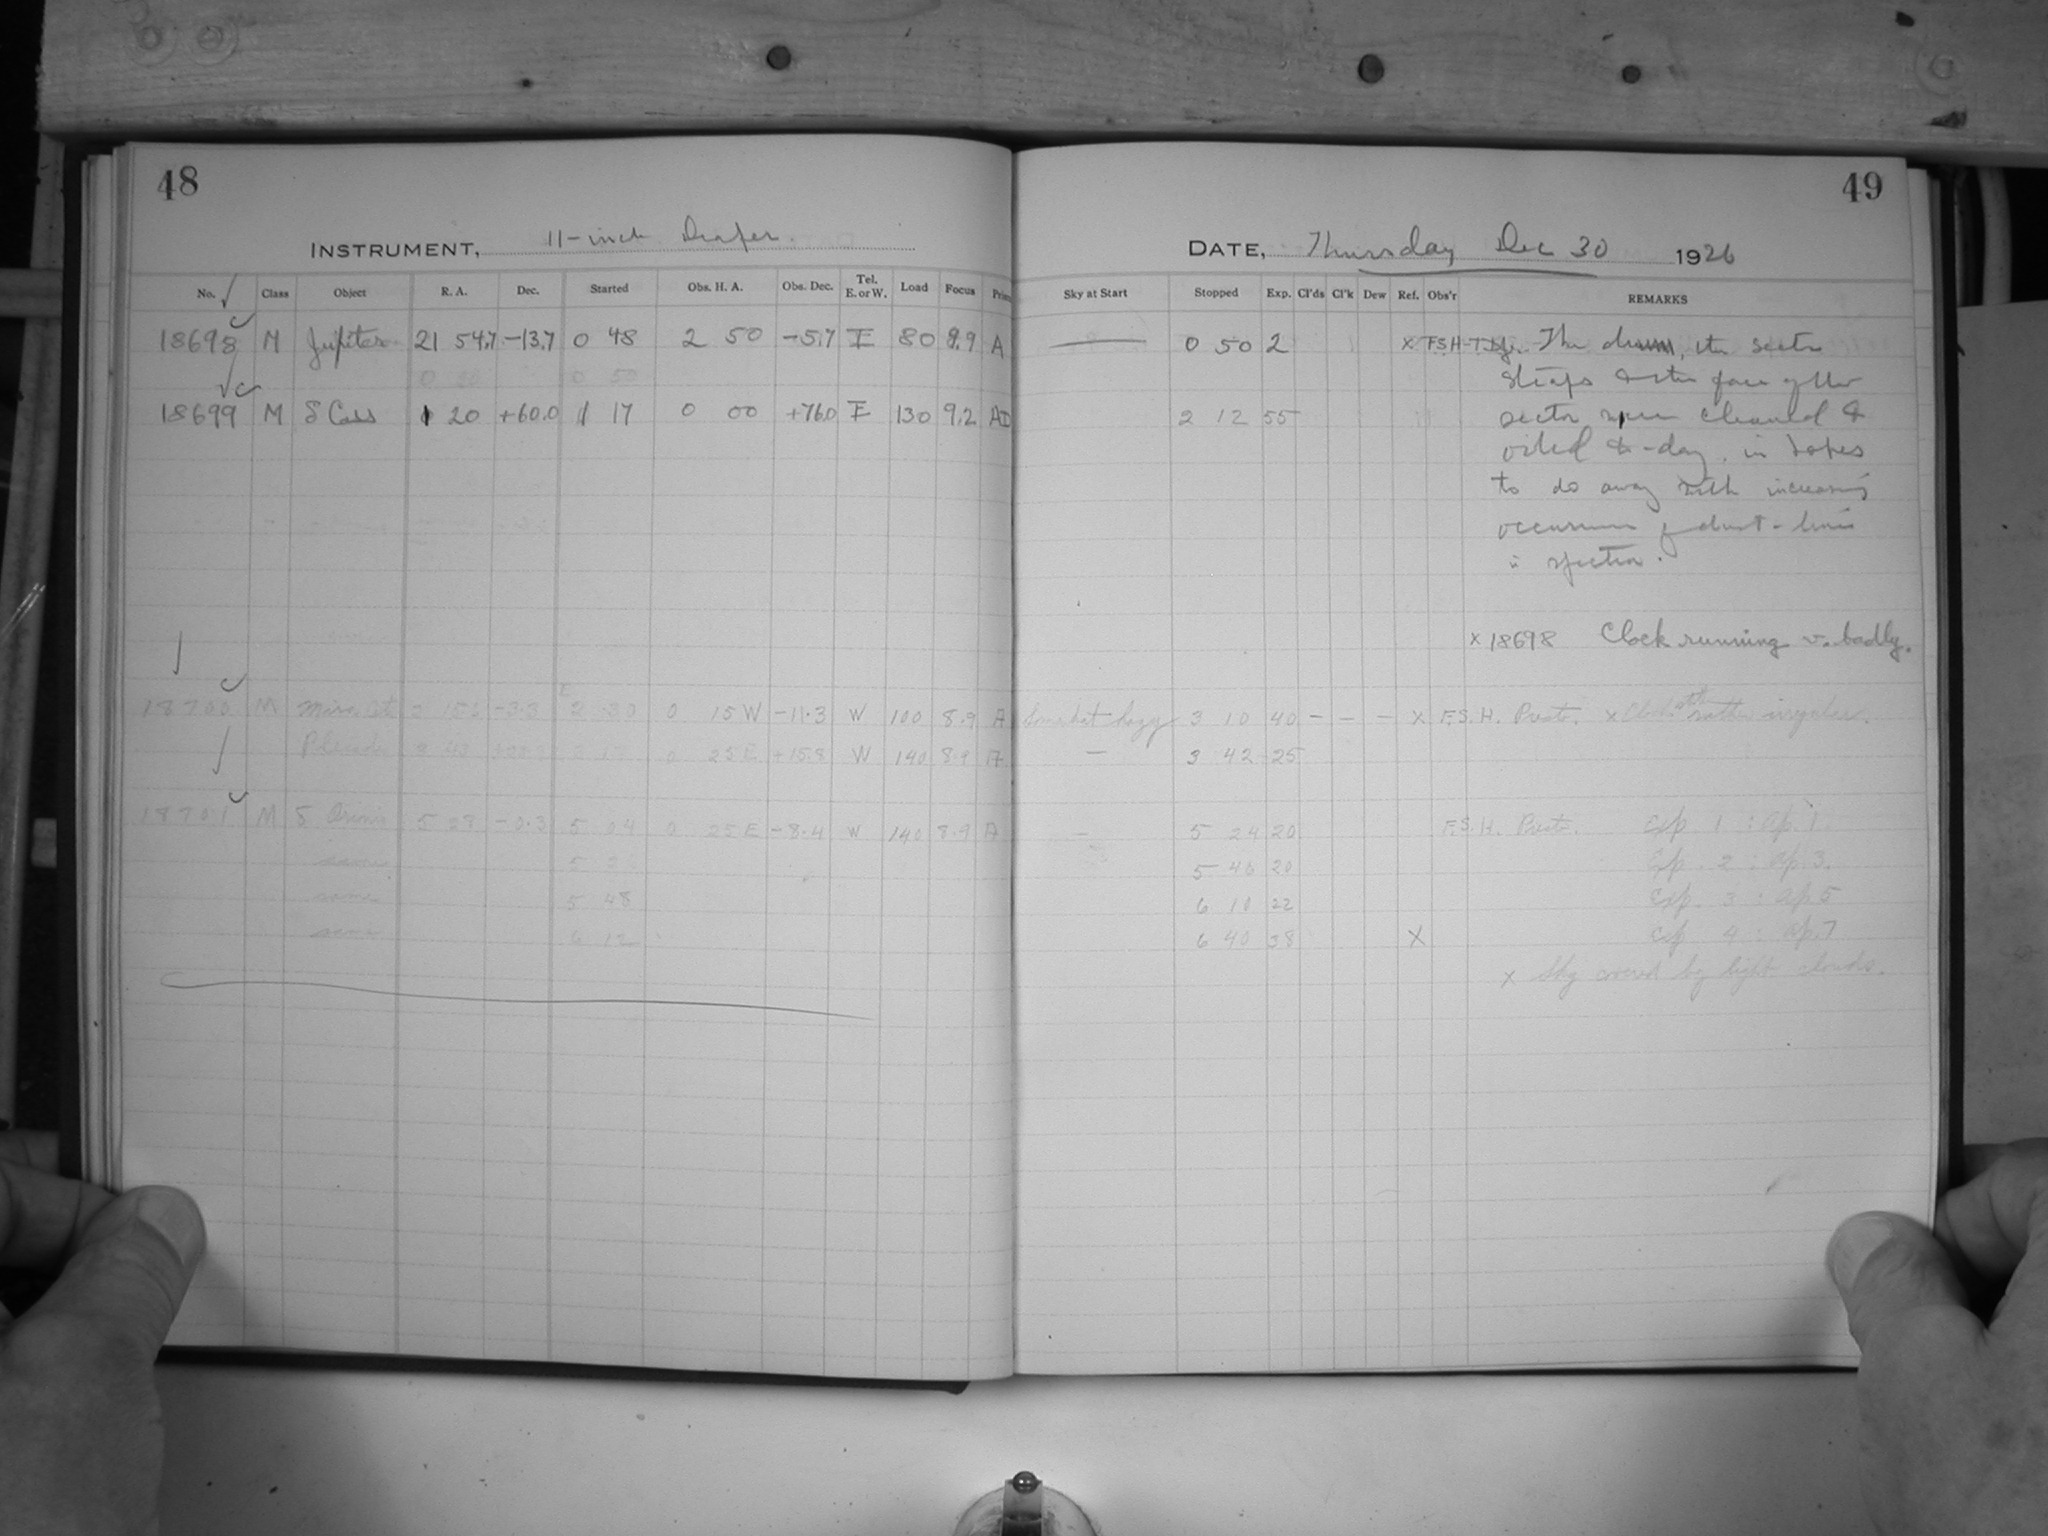 48
INSTRUMENT, 11-inch Draper.
No. Class Object R. A. Dec. Started Obs. H. A. Obs. Dec. Tel. E. or W. Load Focus
18698 M Jupiter 21 54.7 -13.7 0 48 2 50 -5.7 E 80 9.9 A
18699 M δ Cass 1 20 +60.0 1 17 0 00 +76.0 E 130 9.2
18700 M Mira Ceti -3.3 2 30 0 15 W -11.3 W 100 8.9 A
0 25 E +15.8 W 140 8.9 A
18701 M δ Orionis 5 28 -0.3 5 04 0 25 E -8.4 W 140 8.9 A
same
same 5 48
same 6 12
49
DATE, Thursday Dec 30 1926
Sky at Start Stopped Exp. Cl'ds Cl'k Dew Ref. Obs'r REMARKS
0 50 2 x F.S.H. The drum, the sector
straps & the face of the
2 12 55 sector were cleaned &
oiled to-day, in hopes
to do away with increasing
occurrence of dust-lines
in spectra.
x 18698 Clock running v. badly.
Somewhat hazy 3 10 40 - - - x F.S.H. x Clock rather irregular.
— 3 42 25
— 5 24 20 F.S.H. Exp. 1 : ap. 1.
5 46 20 Exp. 2 : ap. 3.
6 10 22 Exp. 3 : ap 5
6 40 38 x Exp 4 : ap. 7
x Sky covered by light clouds.